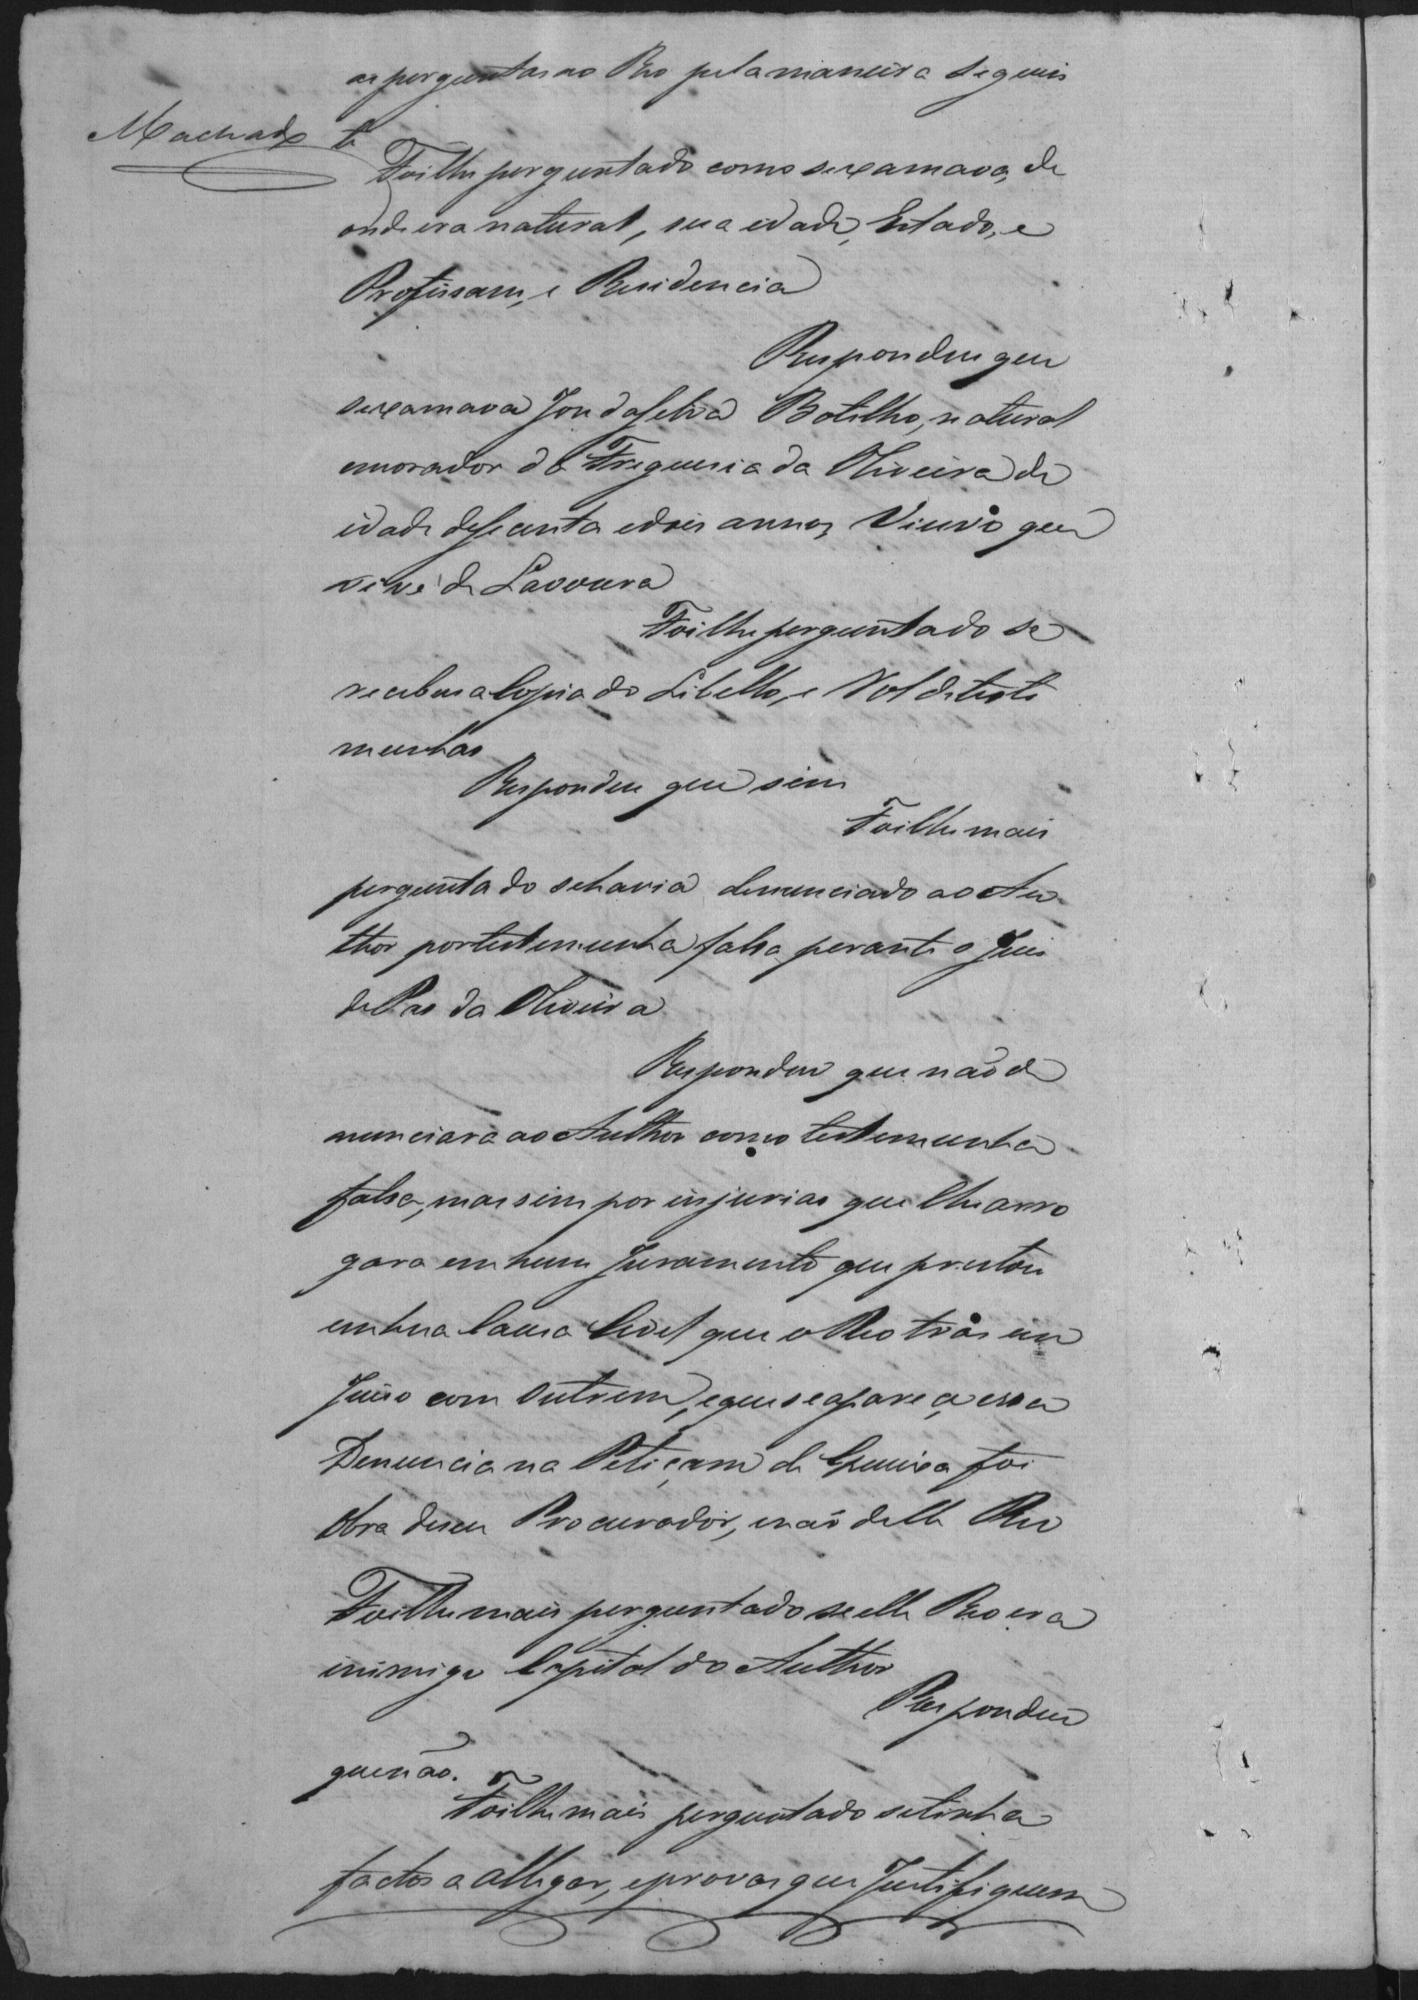 as perguntas ao Reo pela maneira seguin
Machado te
Foilhe perguntado como sexamava, de
onde era natural, sua idade, Estado, e
Profissam, e Residencia
Respondeu que
sexamava José da Silva Botilho, natural
emorador da Freguesia da Oliveira de
idade de secenta edois annos, Viuvo que
vive de Lavoura
Foilhe perguntado se
recebeu a Copia do Libello, e Rol de teste
munhas
Respondeu que sim
Foilhe mais
perguntado se havia denunciado ao Au
thor por testemunha falsa perante o Juis
de Pas da Oliveira
Respondeu que não de
nunciara ao Author como testemunha
falsa, mas sim por injurias que lhe arro
gara em hum Juramento que prestou
em hua Causa Civel que o Reo trás em
Juiso com outrem, e que se aparece essa
Denuncia na Petiçam de Queixa foi
obra de seu Procurador, enão delle Reo
Foilhe mais perguntado se elle Reo era
inimigo Capital do Author
Respondeu
que não.
Foilhe mais perguntado se tinha
factos a allegar, e provas que Justifiquem